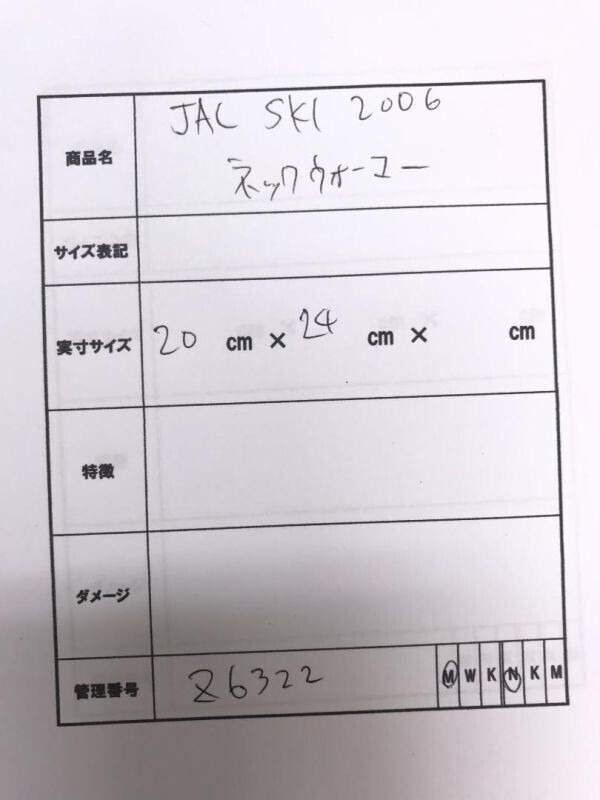 商品名
JAL SKI 2006
ネックウォーマー
サイズ表記
実寸サイズ
20 cm × 24 cm × cm
特徴
ダメージ
管理番号
Z6322
M W K N K M